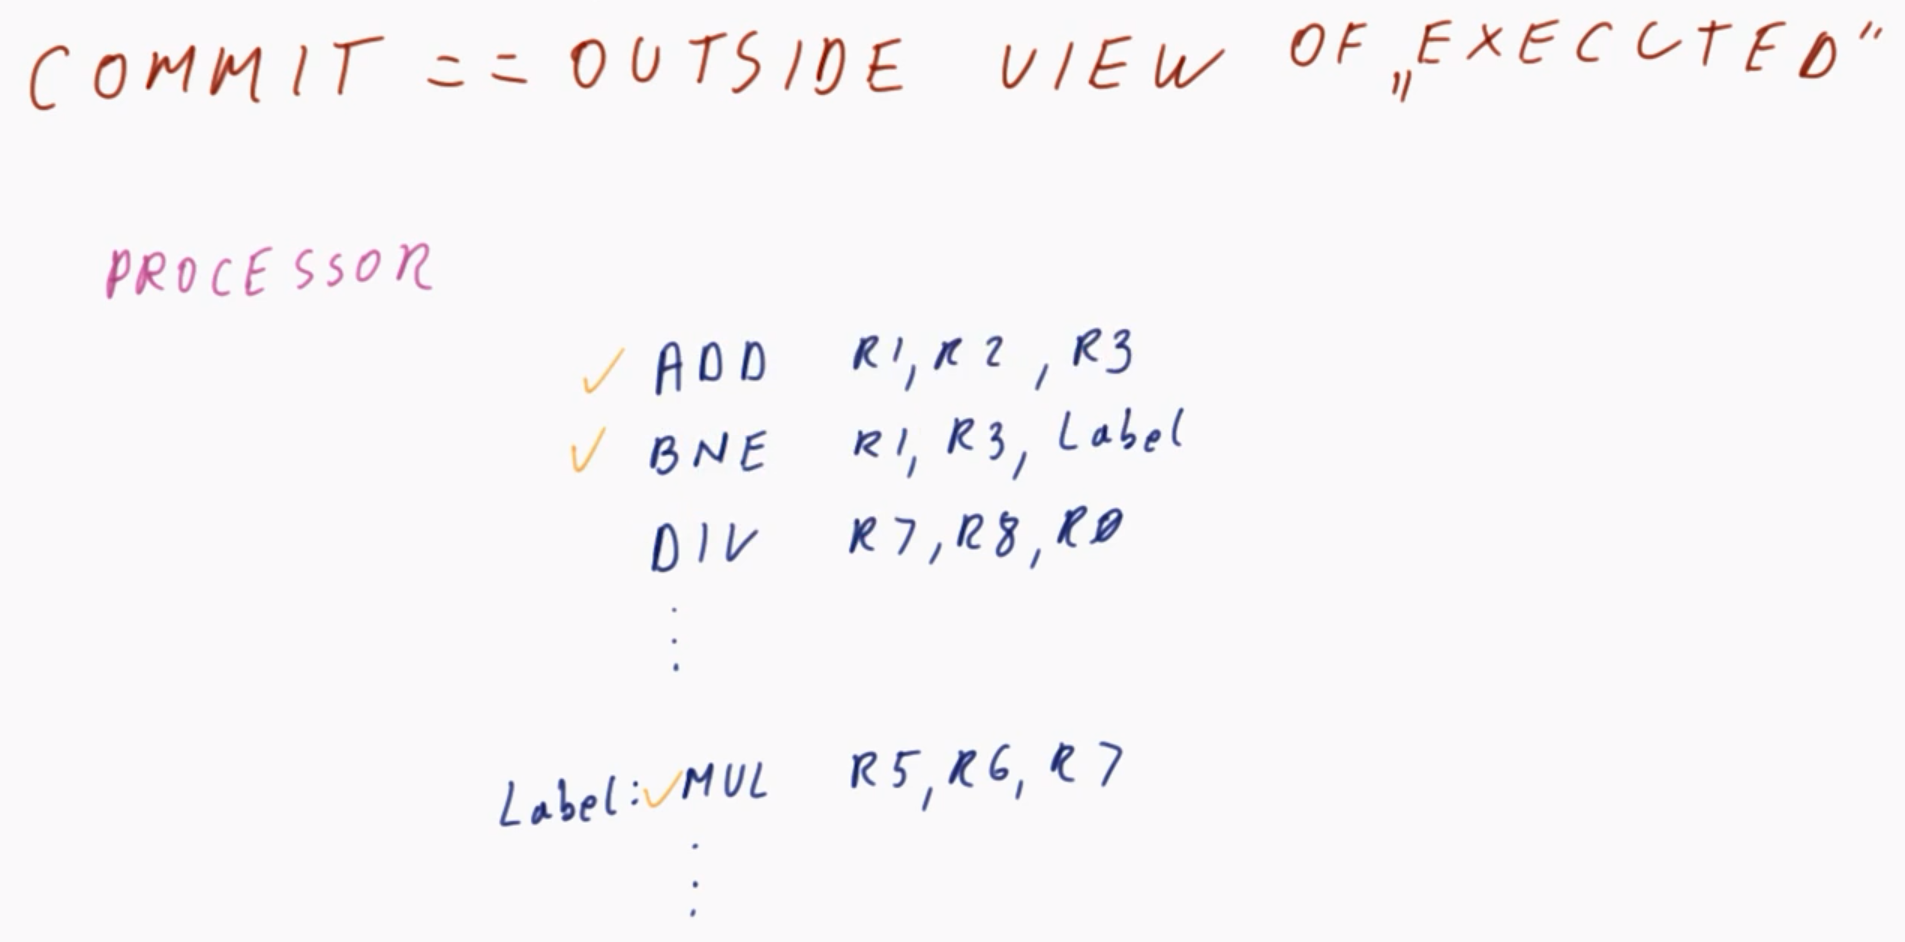 COMMIT == OUTSIDE VIEW OF „EXECUTED"
PROCESSOR
✓ ADD R1, R2, R3
✓ BNE R1, R3, Label
DIV R7, R8, R0
⋮
Label: ✓ MUL R5, R6, R7
⋮